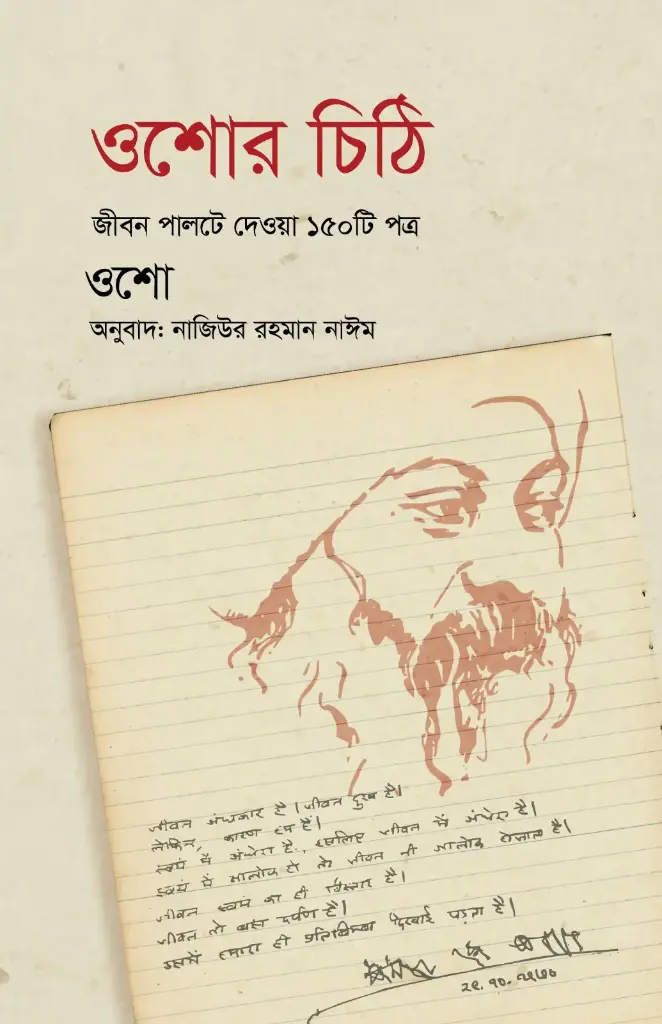 ওশোর চিঠি
জীবন পালটে দেওয়া ১৫০টি পত্র
ওশো
অনুবাদ: নাজিউর রহমান নাঈম
जीवन अंधकार है। जीवन दुख है।
लेकिन, कारण हम हैं।
स्वयं में अंधेरा है, इसलिए जीवन में अंधेरा है।
स्वयं में आलोक हो तो जीवन भी आलोक हो जाता है।
जीवन स्वयं का ही विस्तार है।
जीवन तो बस दर्पण है।
उसमें हमारा ही प्रतिबिम्ब दिखाई पड़ता है।